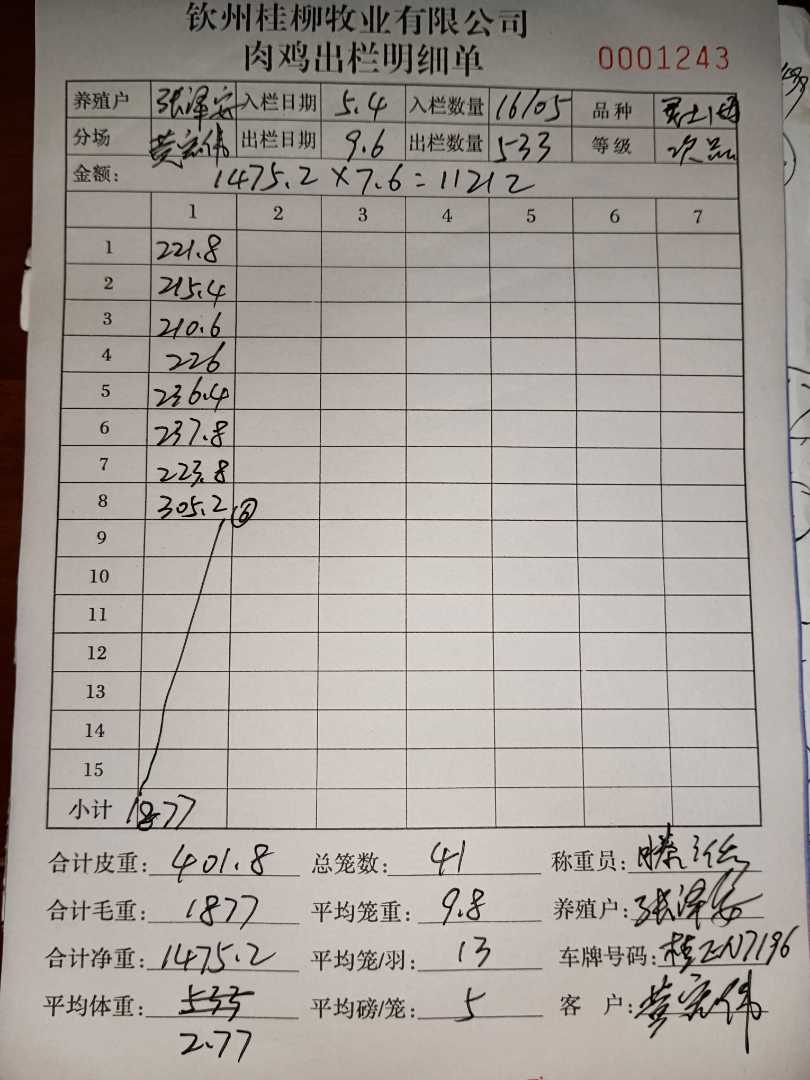 钦州桂柳牧业有限公司
肉鸡出栏明细单 0001243
养殖户 张泽安 入栏日期 5.4 入栏数量 16105 品种
分场 黄宏伟 出栏日期 9.6 出栏数量 533 等级 次品
金额: 1475.2×7.6=11212
1 2 3 4 5 6 7
1 221.8
2 215.4
3 210.6
4 226
5 236.4
6 237.8
7 223.8
8 305.2 ⑥
9
10
11
12
13
14
15
小计 1877
合计皮重: 401.8 总笼数: 41 称重员:
合计毛重: 1877 平均笼重: 9.8 养殖户: 张泽安
合计净重: 1475.2 平均笼/羽: 13 车牌号码: 桂ZN7196
平均体重: 533 平均磅/笼: 5 客 户: 黄宏伟
2.77